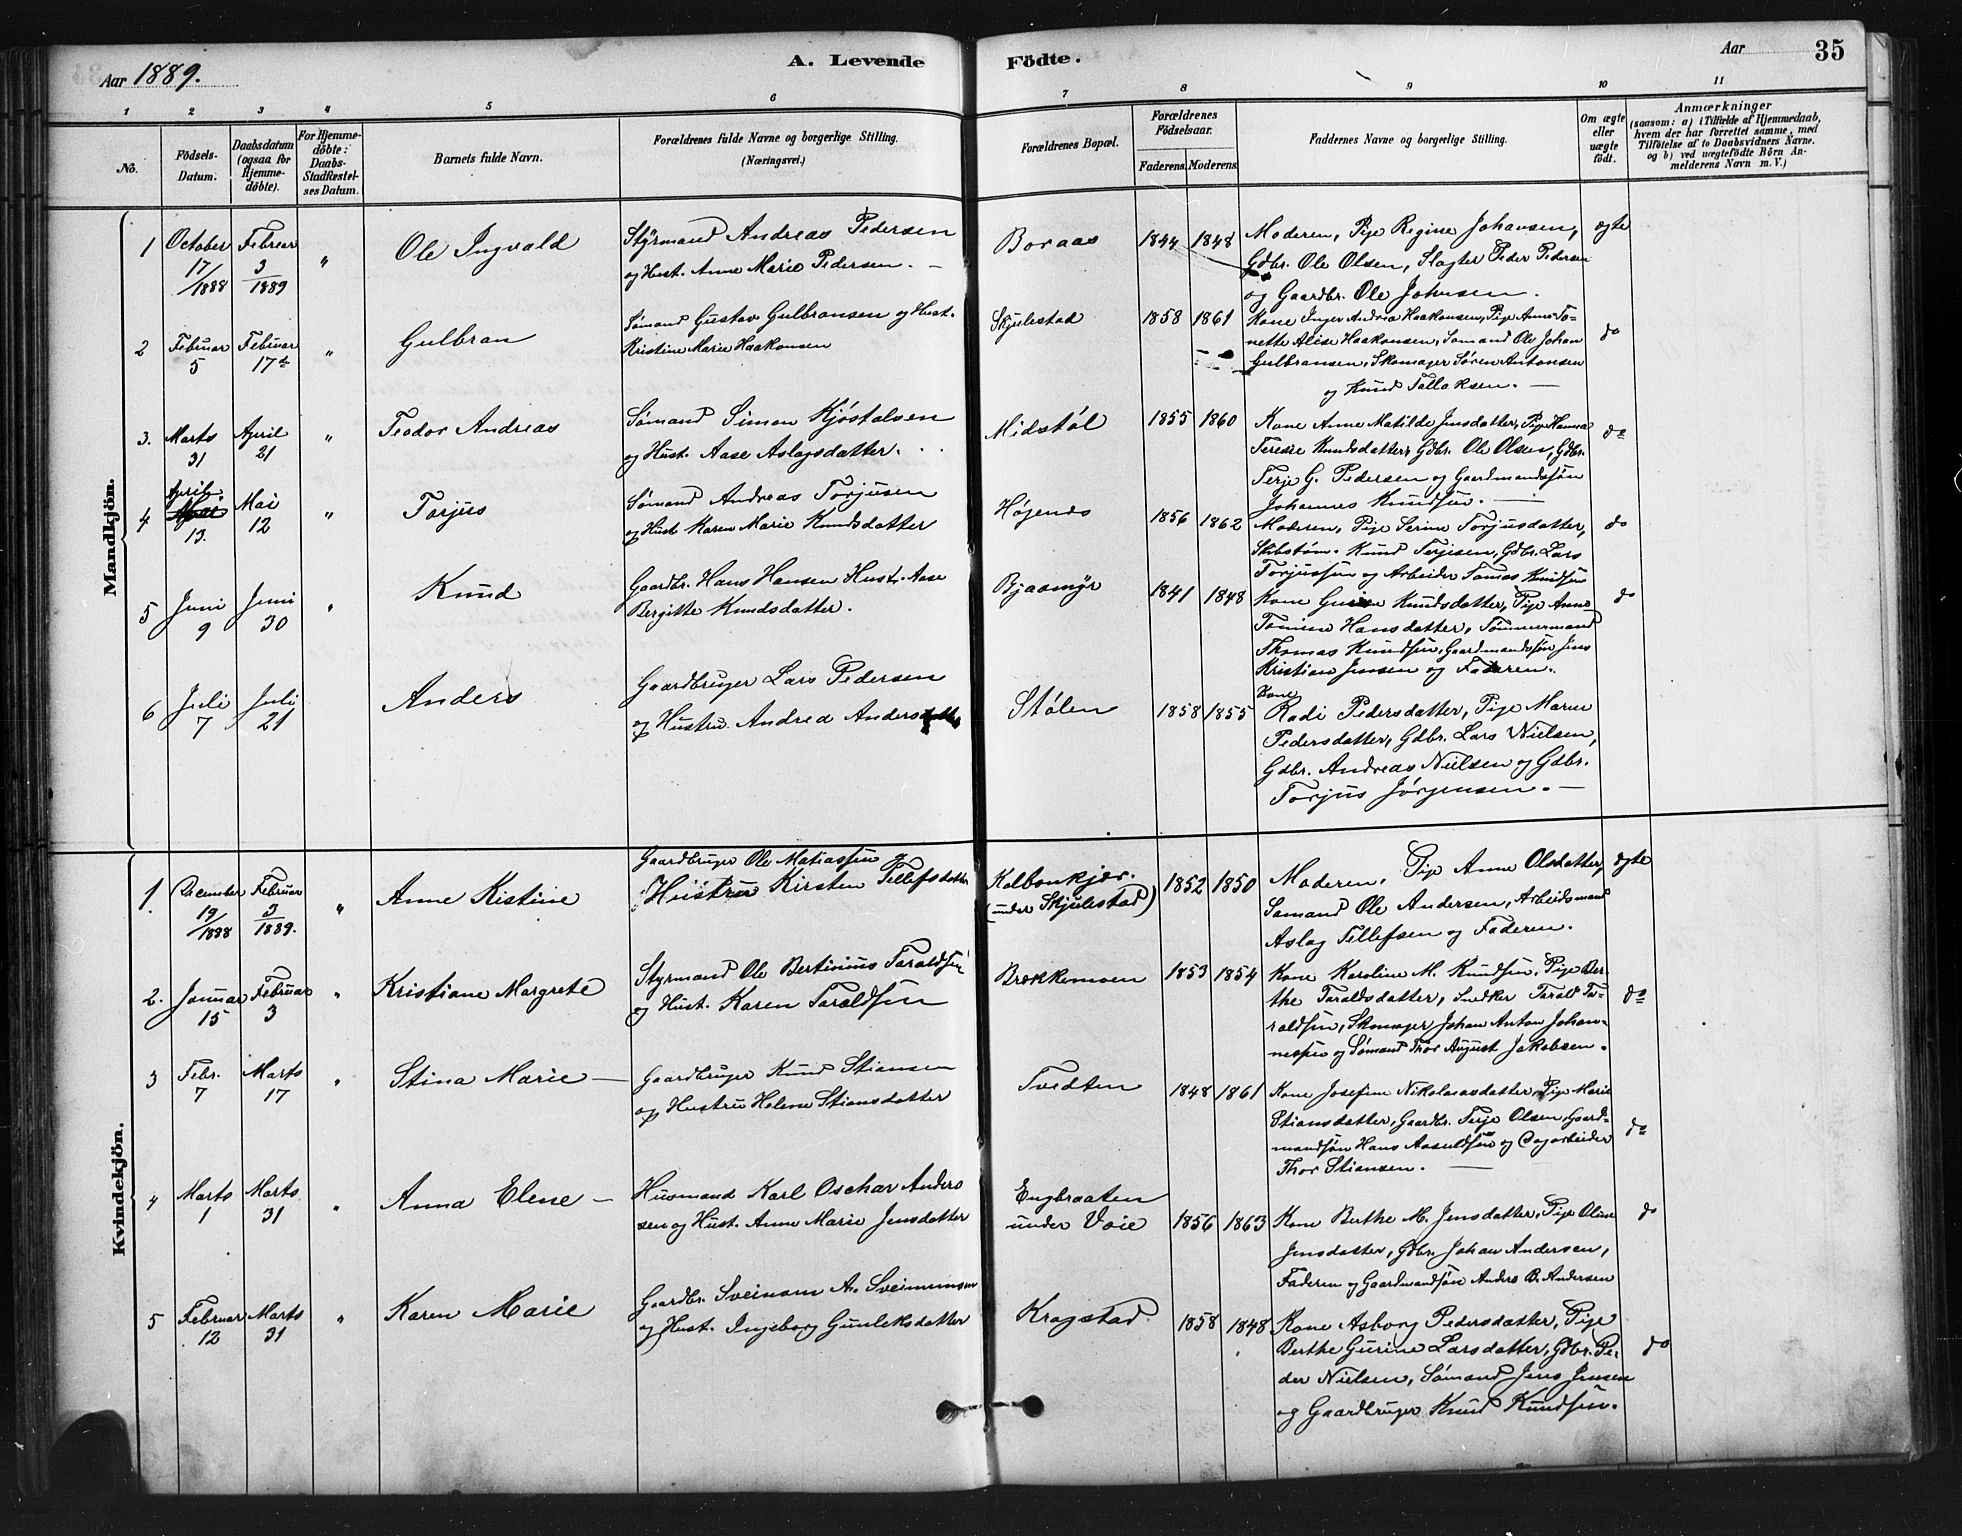 Aar 1889.
A. Levende Födte.
Aar 35
1 2 3 4 5 6 7 8 9 10 11
No.
Födsels-Datum.
Daabsdatum (ogsaa for Hjemme-döbte).
For Hjemme-döbte: Daabs-Stadfæstel-ses Datum.
Barnets fulde Navn.
Forældrenes fulde Navne og borgerlige Stilling. (Næringsvei.)
Forældrenes Bopæl.
Forældrenes Födselsaar.
Faderens. Moderens.
Faddernes Navne og borgerlige Stilling.
Om ægte eller uægte födt.
Anmærkninger
(saasom: a) i Tilfælde af Hjemmedaab,
hvem der har forrettet samme, med
Tilföielse af to Daabsvidners Navne.
og b) ved uægtefödte Börn An-
melderens Navn m. V.)
Mandkjön.
1 October 17/1888 Februar 3/1889 " Ole Ingvald
Styrmand Andreas Pedersen
og Hust. Anne Marie Pedersen. —
Boraas 1844 1848
Moderen, Pige Regine Johansen,
Gdbr. Ole Olsen, Slagter Peder Pedersen
og Gaardbr. Ole Johnsen.
ægte
2 Februar 5 Februar 17de " Gulbran
Sømand Gustav Gulbransen og Hust.
Kristine Marie Haakonsen
Skjulestad 1858 1861
Kone Inger Andrea Haakonsen, Pige Anne To-
nette Alise Haakonsen, Sømand Ole Johan
Gulbransen, Skomager Søren Antonsen
og Knud Tallaksen. —
do
3. Marts 31 April 21 " Teodor Andreas
Sømand Simon Kjøstolsen
og Hust. Aase Aslagsdatter.
Midstøl 1855 1860
Kone Anne Matilde Jensdatter, Pige Hanna
Terese Knudsdatter, Gdbr. Ole Olsen, Gdbr.
Terje G. Pedersen og Gaardmandssøn
Johannes Knudsen. —
do
4 April 13. Mai 12 " Torjus
Sømand Andreas Torjusen
og Hust. Karen Marie Knudsdatter
Høgenes 1856 1862
Moderen, Pige Serine Torjusdatter,
Skibstøm. Knud Terjesen, Gdbr. Lars
Torjussen og Arbeider Tomas Knudsen
do
5 Juni 9 Juni 30 " Knud
Gaardbr. Hans Hansen Hust. Aase
Bergitte Knudsdatter.
Bjaamyr 1841 1848
Kone Knudsdatter, Pige Anne
Tomine Hansdatter, Tømmermand
Thomas Knudsen, Gaardmandssøn Jens
Kristian Jensen og Faderen.
do
6 Juli 7 Juli 21 Anders
Gaardbruger Lars Pedersen
og Hustru Andrea Andersdatter
Stølen 1858 1855
Kone
Radi Pedersdatter, Pige Maren
Pedersdatter, Gdbr. Lars Nielsen,
Gdbr. Andreas Nielsen og Gdbr.
Torjus Jørgensen. —
Kvindekjön.
1. December 19/1888 Februar 3/1889. " Anne Kistine
Gaardbruger Ole Matiassen og
Hustru Kirsten Tellefsdatter
Kolbonkjær.
(under Skjulestad)
1852 1850
Moderen, Pige Anne Olsdatter,
Sømand Ole Andersen, Arbeidsmand
Aslag Tellefsen og Faderen.
ægte
2. Januar 15 Februar 3 " Kristiane Margrete
Styrmand Ole Bertinius Taraldsen
og Hust. Karen Taraldsen
Brækkemoen 1853 1854
Kone Karoline M. Knudsen, Pige Ber-
the Taraldsdatter, Snedker Tarald Ta-
raldsen, Skomager Johan Anton Johan-
nessen og Sømand Thor August Jakobsen.
do
3 Febr. 7 Marts 17 " Stina Marie —
Gaardbruger Knud Stiansen
og Hustru Helene Stiansdatter
Tvedten 1848 1861
Kone Josefine Nikolaiasdatter, Pige Marie
Stiansdatter, Gaardbr. Terje Olsen, Gaard-
mandsøn Hans Aasuldsen og Dagarbeider
Thor Stiansen. —
do
4 Marts 1 Marts 31 " Anna Elene —
Husmand Karl Oschar Anders
sen og Hust. Anne Marie Jensdatter
Engbraaten
under Voie
1856 1863
Kone Berthe M. Jensdatter, Pige Oline
Jensdatter, Gdbr. Johan Andersen,
Faderen og Gaardmandsøn Anders B. Andersen
do
5 Februar 12 Marts 31 " Karen Marie
Gaardbr. Sveinom A. Sveinumsen
og Hust. Ingeborg Gunleksdatter
Kragstad 1858 1848
Kone Asborg Pedersdatter, Pige
Berthe Gurine Larsdatter, Gdbr. Pe-
der Nielsen, Sømand Jens Jensen
og Gaardbruger Knud Knudsen.
do